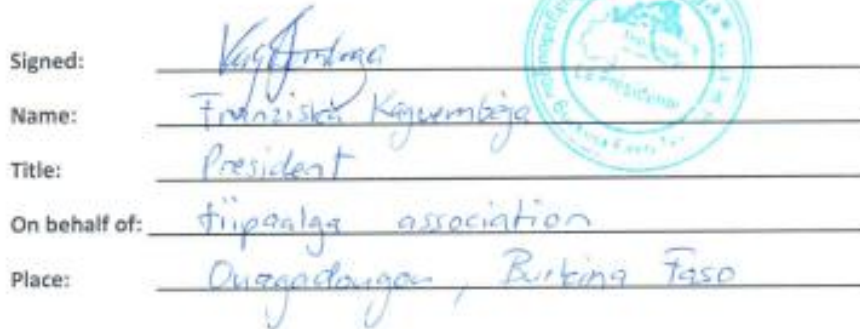 Signed:
Name: Franziska Kaguembèga
Title: President
On behalf of: tiipaalga association
Place: Ouagadougou, Burkina Faso
La Présidente